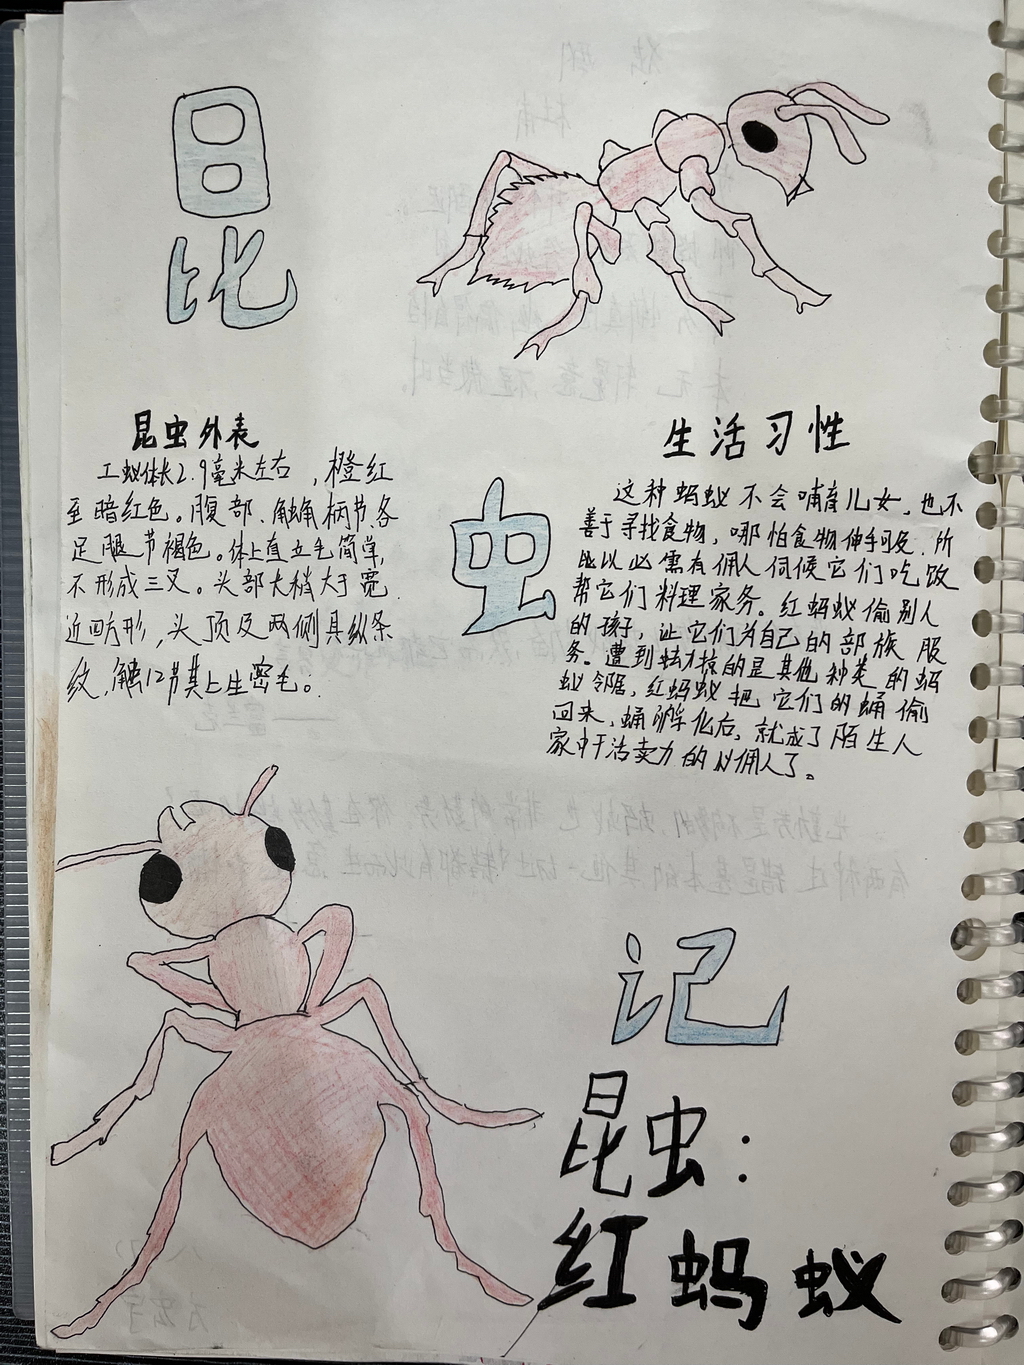 昆
虫
记
昆虫外表
工蚁体长2.9毫米左右,橙红
至暗红色。腹部、触角柄节、各
足腿节褐色。体上直立毛简单,
不形成三叉。头部长稍大于宽.
近四方形,头顶及两侧具纵条
纹,触12节其上生密毛。
生活习性
这种蚂蚁不会哺育儿女,也不
善于寻找食物,哪怕食物伸手可及.所
以必需有佣人伺候它们吃饭
帮它们料理家务。红蚂蚁偷别人
的孩子,让它们为自己的部族服
务。遭到劫掠的是其他种类的蚂
蚁邻居,红蚂蚁把它们的蛹偷
回来,蛹孵化后,就成了陌生人
家中干活卖力的佣人了。
昆虫:
红蚂蚁